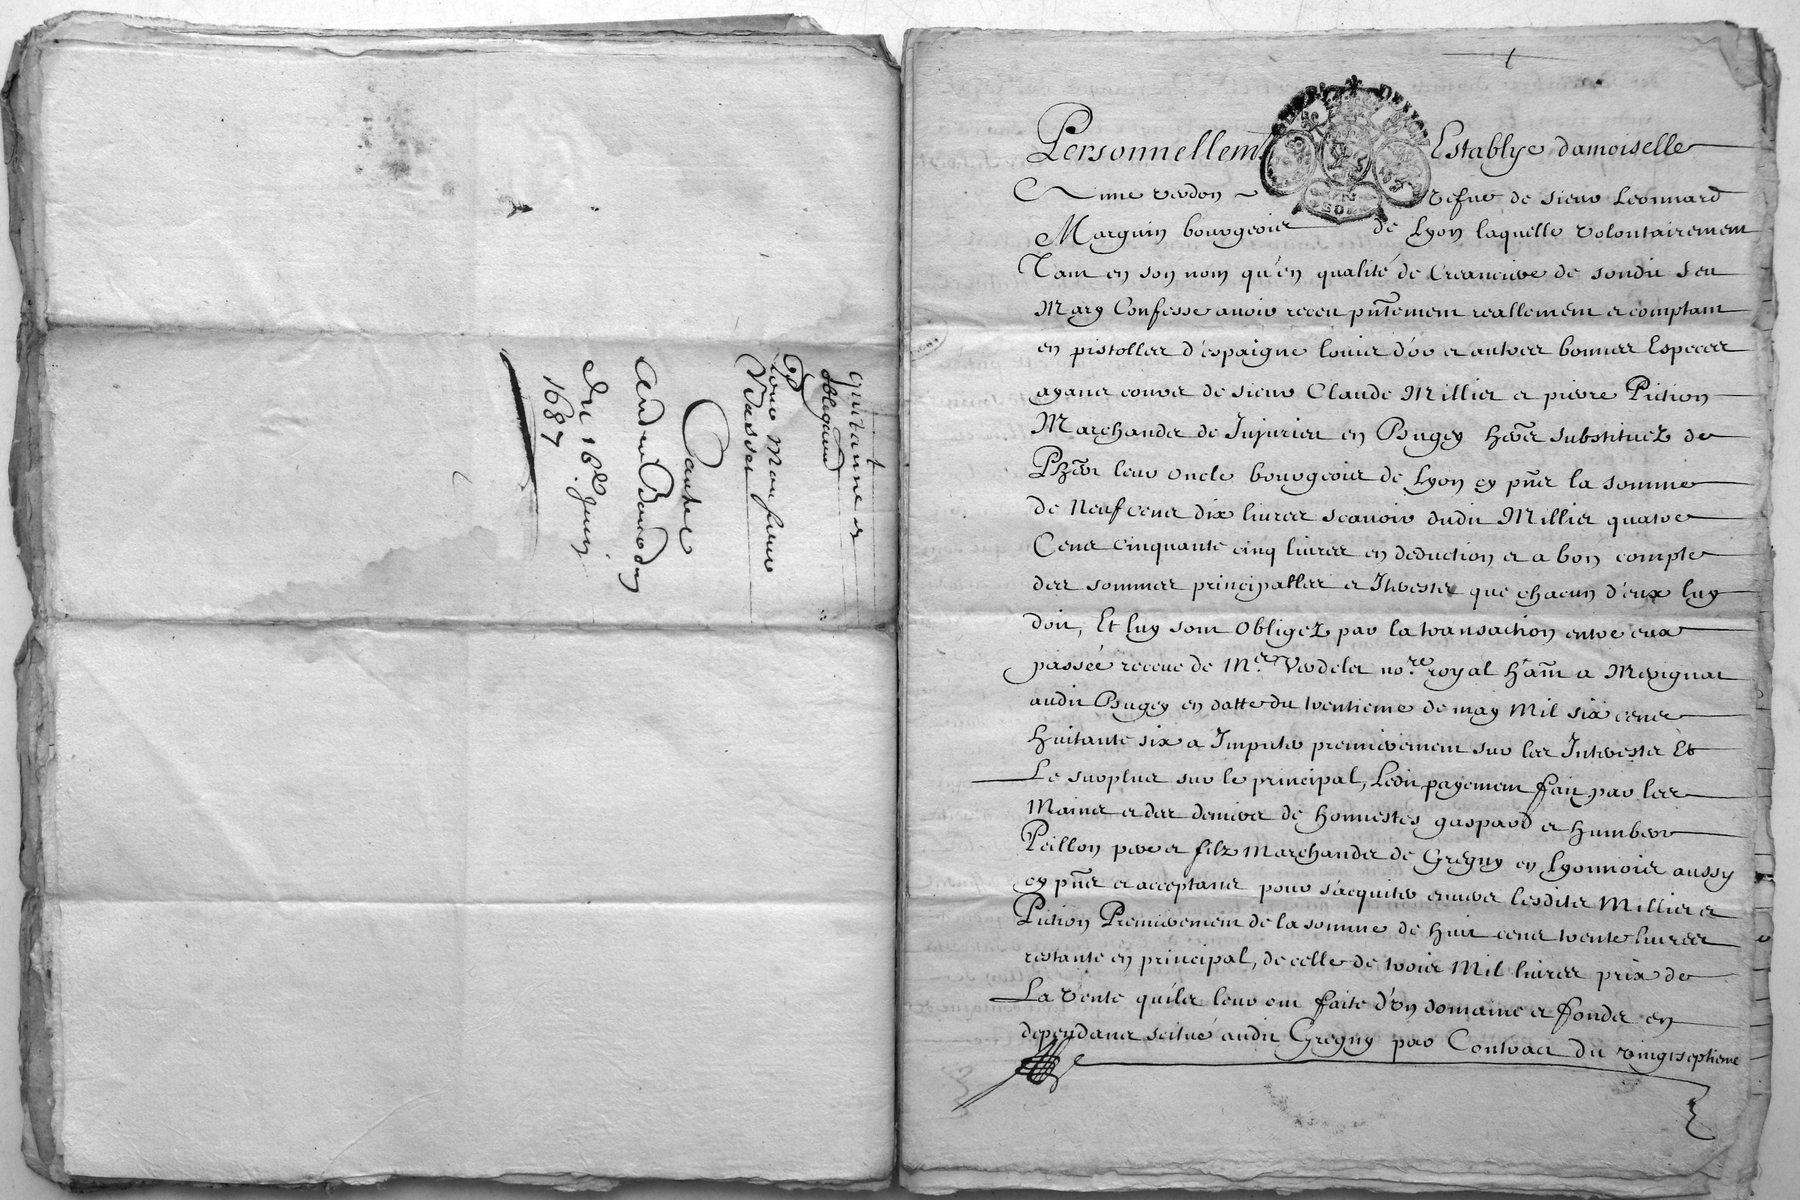 quittance et
obligaon
Pour Monsieur
Vidasset
Contre
André Baurodry
du 16e. Juin
1687
Personnellemt Establye damoiselle
Anne verdon vefue de sieur Leonnard
Marguin bourgeois de Lyon laquelle volontairement
Tant en son nom qu'en qualité de Creanciere de sondit feu
Mary Confesse auoir receu pntement reallement et comptant
en pistolles d'espaigne louis d'or et autres bonnes Especes
ayans cours de sieurs Claude Millier et pierre Piction
Marchands de Jujurieu en Bugey hers substituez de
leur oncle bourgeois de Lyon cy pns la somme
de Neuf cens dix liures scauoir dudit Millier quatre
Cens cinquante cinq liures en deduction et a bon compte
des sommes principalles et Jnterests que chacun d'eux luy
doit, Et luy sont Obligez par la transaction entre eux
passée receue de Me. Verdelet nore. royal ham a Merignat
audit Bugey en datte du trentieme de may Mil six cens
huitante six a Jmputer premierement sur les Jnterests Et
Le surplus sur le principal, Ledit payement fait par les
Mains et des deniers de honnestes gaspard et humbert
Peillon pere et filz Marchands de Gregny en Lyonnois aussy
cy pns et acceptans pour s'acquiter enuers lesdits Millier et
Piction Premierement de la somme de huit cens trente liures
restante en principal, de celle de trois Mil liures prix de
La vente qu'ils leur ont faite d'un domaine et fonds en
dependans scitué audit Gregny par Contract du vingtseptieme